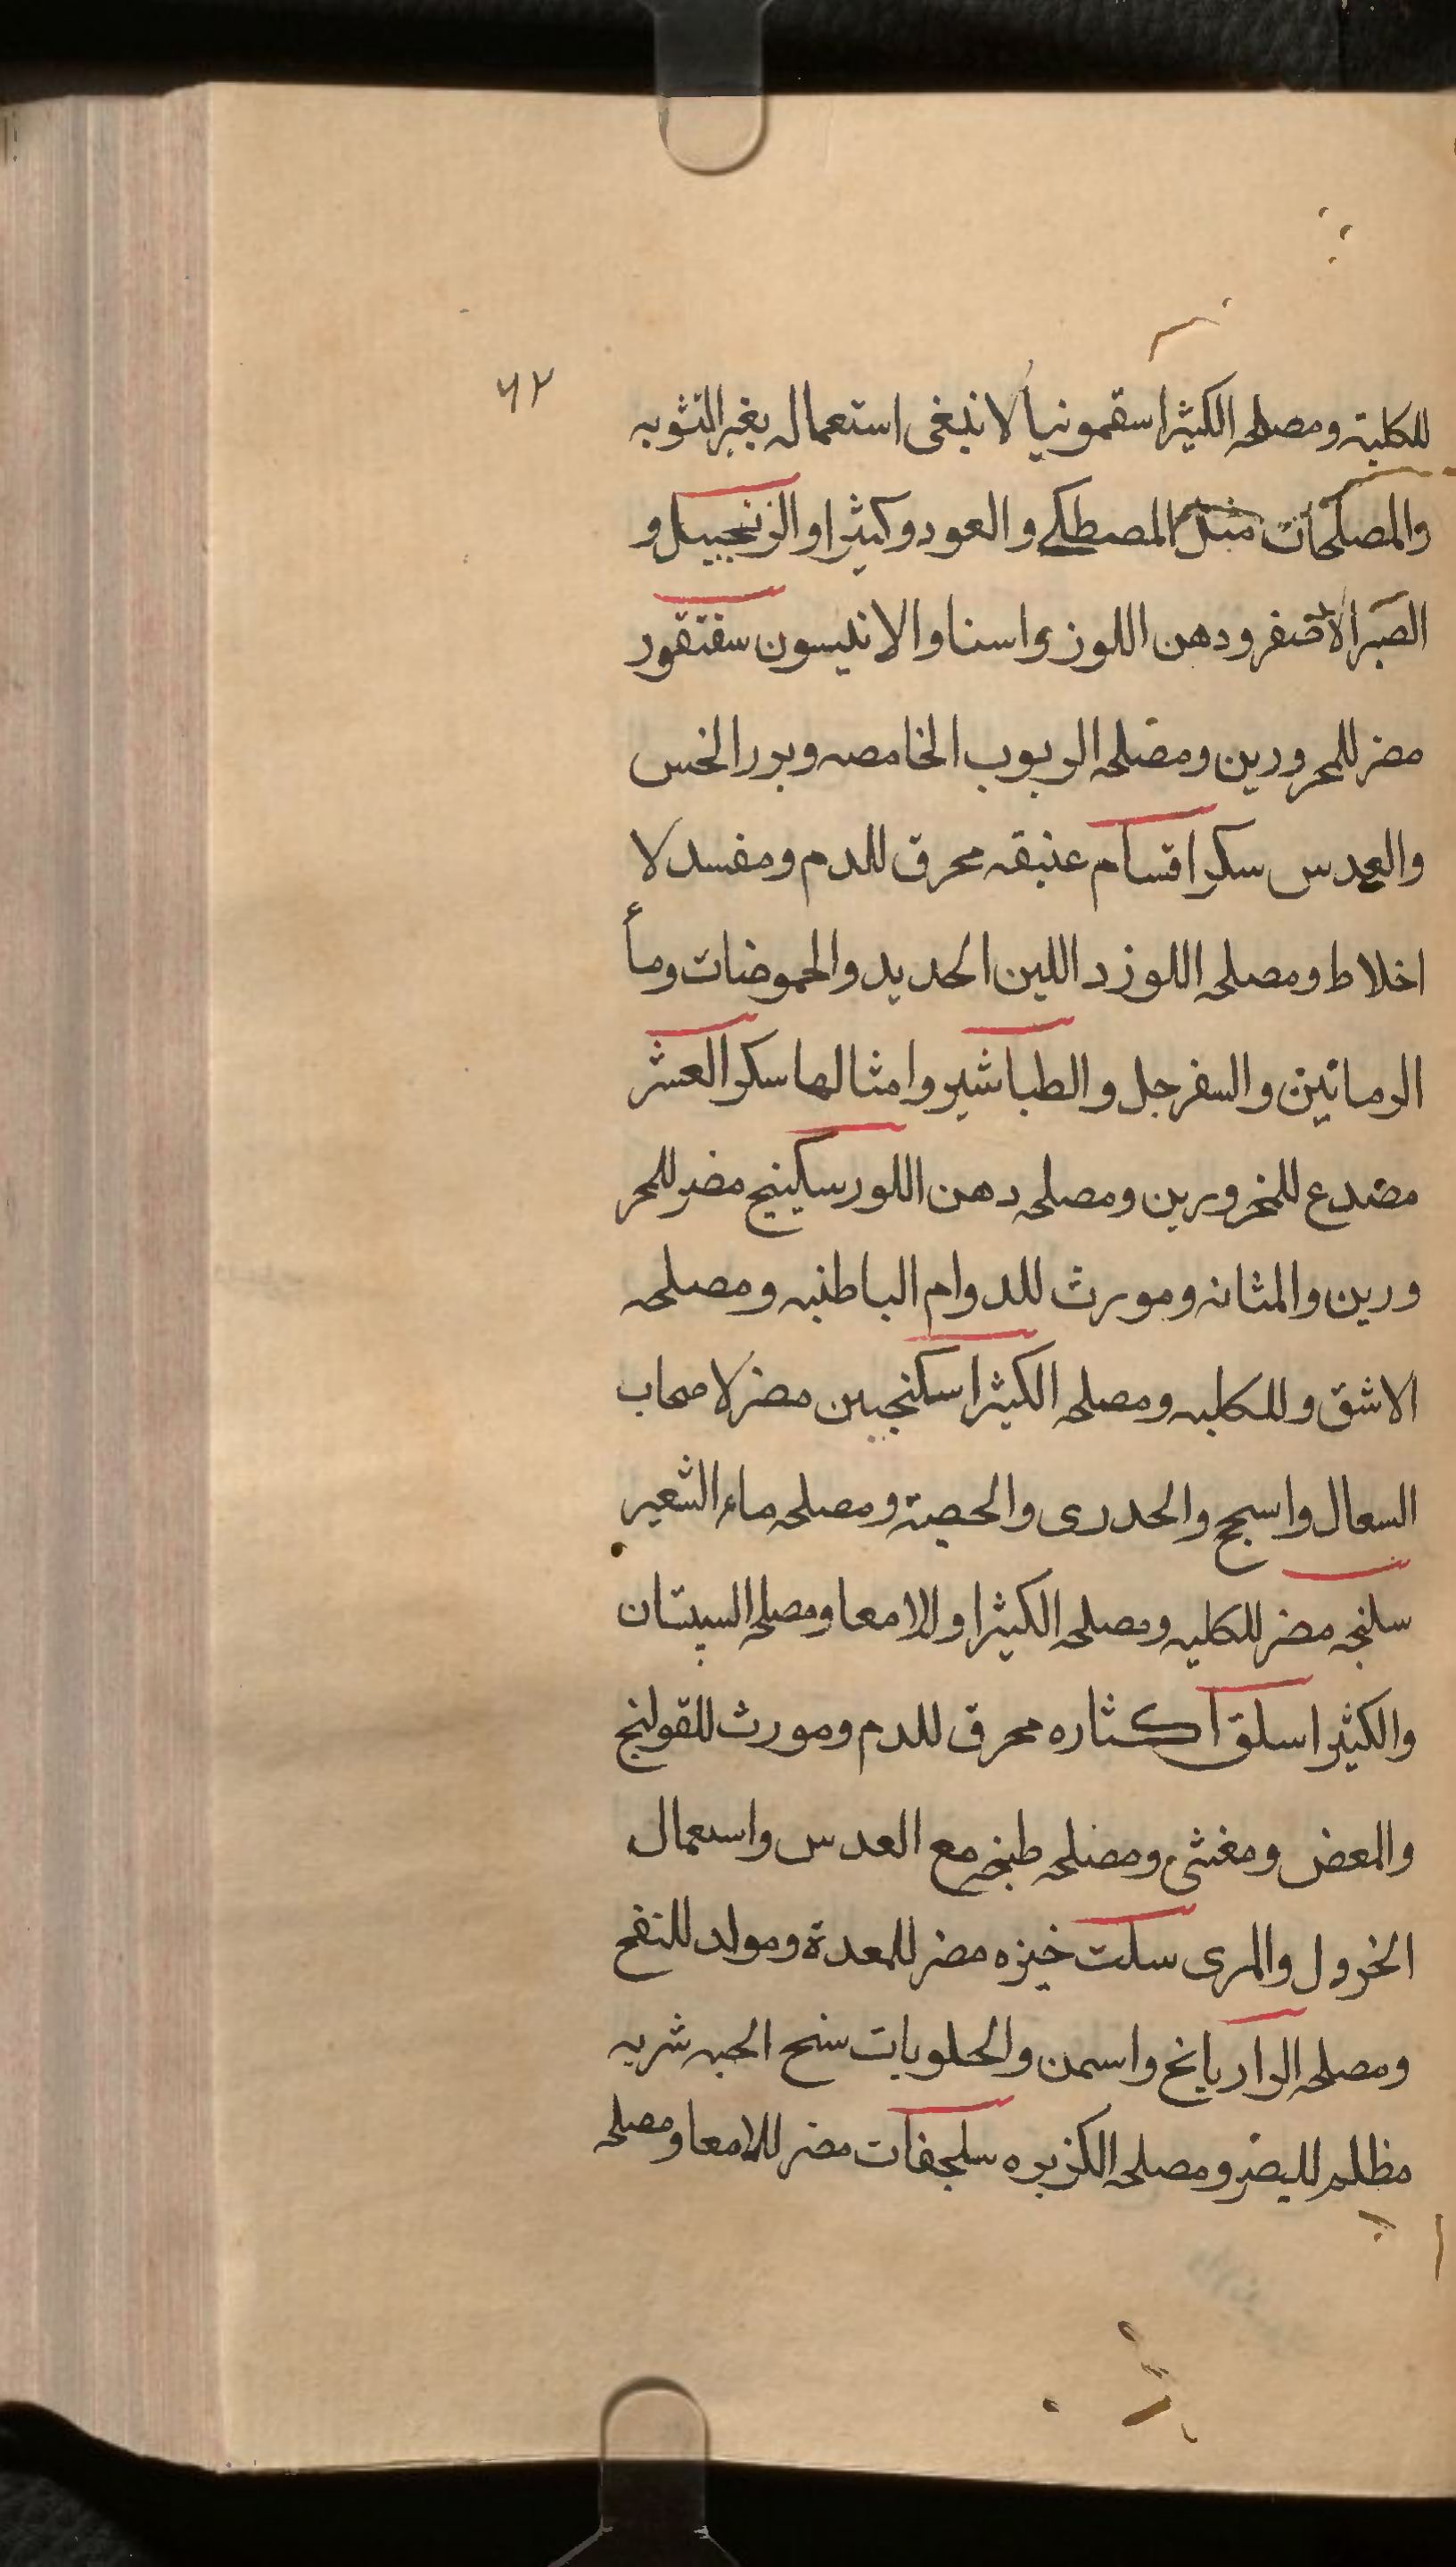 ۶۲
للكلية ومصلحه الكثيرا سقمونيا لا نبغى استعماله بغير التثويه
والمصلحات مثل المصطكے والعود وكثيرا والزنجبيل و
الصبر الأصفر ودهن اللوز واسنا والانيسون سقنقور
مضر للمحرورين ومصلحه الربوب الخامصه وبرر الخس
والعدس سكر اقسام عتيقه محرق للدم ومفسد لا
اخلاط ومصلحه اللوزد اللين الحديد والحموضات ومأ
الرمانين والسفرجل والطباشير وامثالها سكر العشر
مضدع للمخرورين ومصلحه دهن اللور سكينيج مضر للمحر
ورين والمثانه ومورث للدوام الباطنيه ومصلحه
الاشق وللكليه ومصلحه الكثيرا سكنجبين مضر لاصحاب
السعال واسجج والحدرى والحصية ومصلحه ماء الشعير
سلنجه مضر للكليه ومصلحه الكثيرا والامعا ومصلحه السپستان
والكثيرا سلق اكثاره محرق للدم ومورث للقولنج
والمعض ومغثى ومصلحه طبخه مع العدس واسعمال
الخرول والمرى سلت خبزه مضر للمعدة ومولد للنفح
ومصلحه الرازيانخ واسمن والحلويات سنح الحبه شربه
مظلم للبصر ومصلحه الكزبره سلحفات مضر للامعا ومصلحه